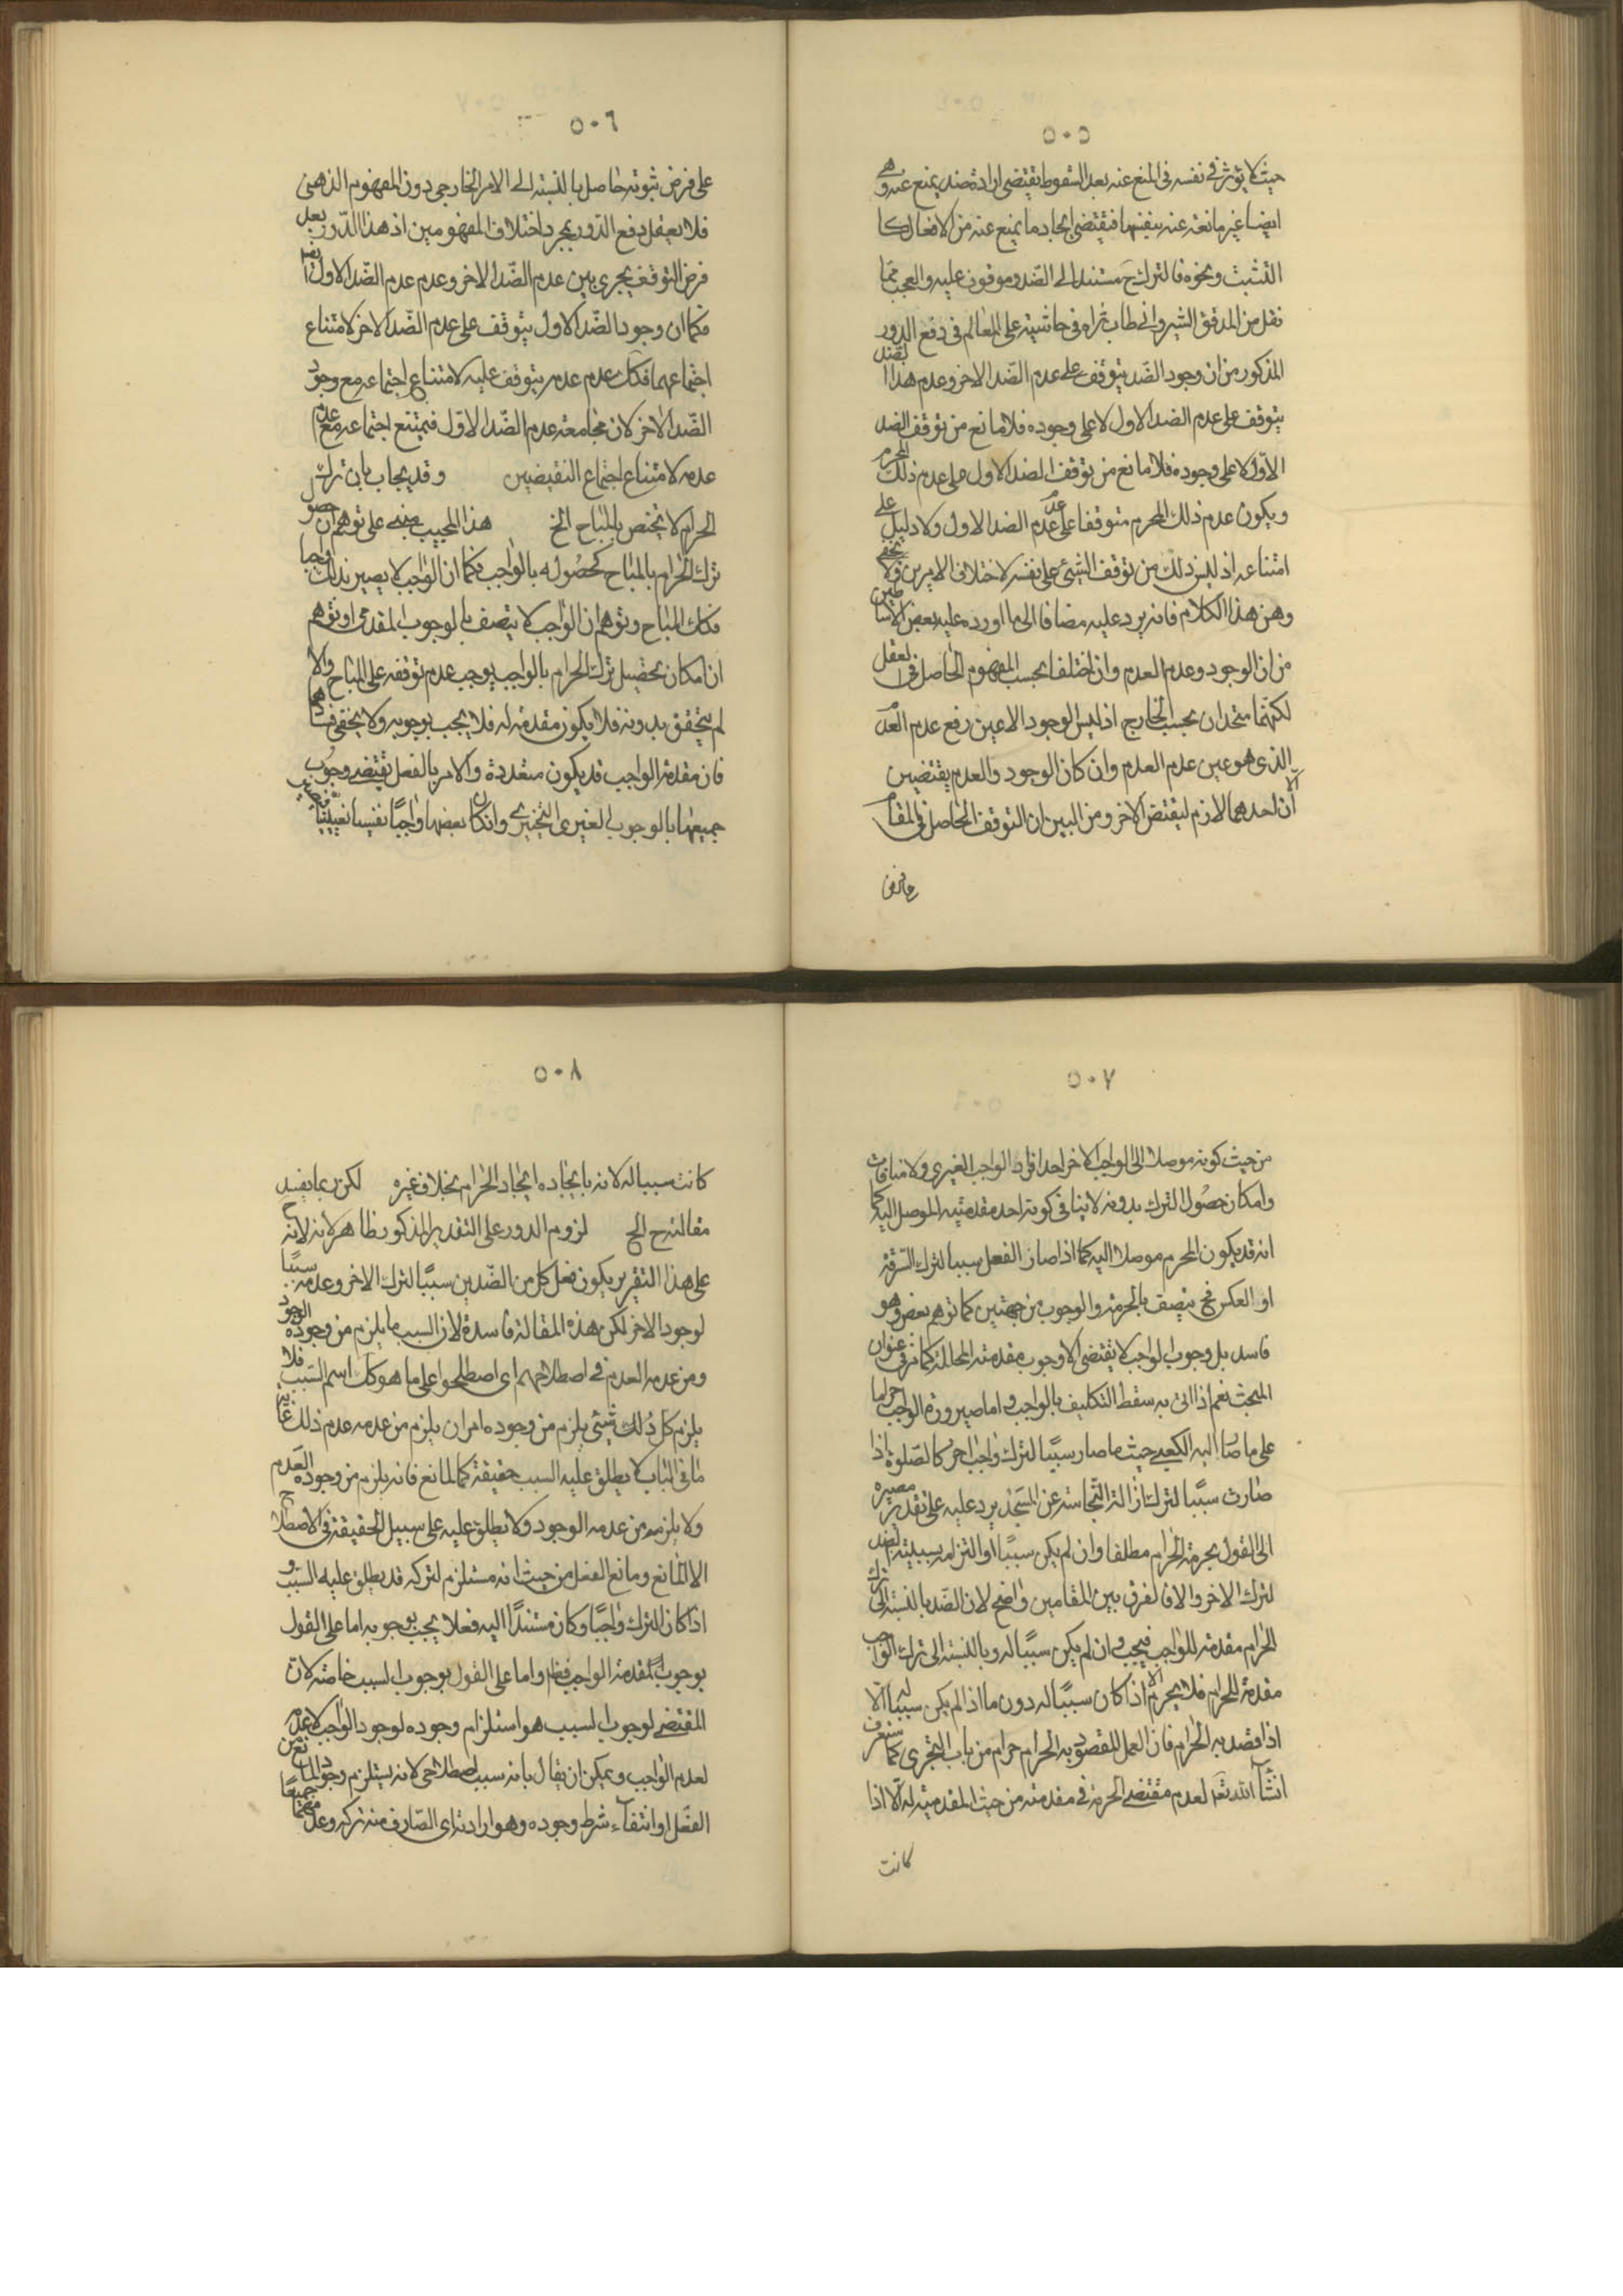 ٥٠٥
حيث لا يؤثر في نفسه في المنع عنه بعد السقوط يقتضى ارادة ضد يمنع عنه وهى
ايضا غير مانعة عنه بنفسها فتقتضى ايجاد ما يمنع عنه من الافعال كا
التشبث ونحوه فالترك ح مستند الى الضد وموقوف عليه والعجب مما
نقل من المدقق الشيروانى طاب ثراه في حاشيته على المعالم في دفع الدور
المذكور من ان وجود الضد يتوقف على عدم الضد الاخر وعدم هذا الضد
يتوقف على عدم الضد الاول لا على وجوده فلا مانع من توقف الضد
الاول لا على وجوده فلا مانع من توقف الضد الاول على عدم ذلك المحرم
ويكون عدم ذلك المحرم متوقفا على عدم عدم الضد الاول ولا دليل على
امتناعه اذ ليس ذلك من توقف الشيئ على نفسه لاختلاف الامرين ولا يخفى
وهن هذا الكلام فانه يرد عليه مضافا الى ما اورده عليه بعض الاساطين
من ان الوجود وعدم العدم وان اختلفا بحسب المفهوم الحاصل في العقل
لكنهما متحدان بحسب الخارج اذ ليس الوجود الا عين رفع عدم العدم
الذى هو عين عدم العدم وان كان الوجود والعدم يقتضين
الا ان احدهما لازم لنقيض الاخر ومن البين ان التوقف الحاصل في المقام
على فرض
٥٠٦
على فرض ثبوته حاصل بالنسبة الى الامر الخارجى دون المفهوم الذهنى
فلا يعقل دفع الدور بمجرد اختلاف المفهومين اذ هذا الدور بعد
فرض التوقف يجرى بين عدم الضد الاخر وعدم عدم الضد الاول ايضا
فكما ان وجود الضد الاول يتوقف على عدم الضد الاخر لامتناع
اجتماعهما فكك عدم عدمه يتوقف عليه لامتناع اجتماعه مع وجود
الضد الاخر لان مجامعته عدم الضد الاول فيمتنع اجتماعه مع عدم
عدمه لامتناع اجتماع النقيضين وقد يجاب بان ترك
الحرام لا يختص بالمباح الخ هذا المجيب مبنى على توهم ان حصول
ترك الحرام بالمباح كحصوله بالواجب فكما ان الواجب لا يصير بذلك واجبا
فكك المباح وتوهم ان الواجب لا يتصف بالوجوب المقدمى او توهم
ان امكان تحصيل ترك الحرام بالواجب يوجب عدم توقفه على المباح والا
لم يتحقق بدونه فلا يكون مقدمة له فلا يجب بوجوبه ولا يخفى فسادهما
فان مقدمة الواجب قد يكون متعددة والامر بالفعل يقتضى وجوب
جميعها بالوجوب الغيرى التخييرى وان كان بعضها واجبا نفسيا تعيينيا
٥٠٧
من حيث كونه موصلا الى الواجب الاخر احد افراد الواجب الغيرى ولا منافات
وامكان حصول الترك بدونه لا ينافى كونه احد مقدمتيه الموصل اليه كما
انه قد يكون المحرم موصلا اليه كما اذا صار الفعل سببا لترك السرقة
او العكس فح يتصف بالحرمة والوجوب من جهتين كما توهم بعض وهو
فاسد بل وجوب الواجب لا يقتضى الا وجوب مقدمته المحللة كما مر في عنوان
المبحث نعم اذا اتى به سقط التكليف بالواجب واما صيرورة الواجب حراما
على ما صار اليه الكعبى حيث ما صار سببا لترك واجب اخر كالصلوة اذا
صارت سببا لترك ازالة النجاسة عن المسجد يرد عليه على تقدير مصيره
الى القول بحرمة الحرام مطلقا وان لم يكن سببا او التزامه بسببية الضد
لترك الاخر والا فالفرق بين المقامين واضح لان الضد بالنسبة الى ترك
الحرام مقدمة للواجب فيجب وان لم يكن سببا له وبالنسبة الى ترك الواجب
مقدمة للحرام فلا يحرم الا اذا كان سببا له دون ما اذا لم يكن سببا له الا
اذا قصد به الحرام فان العمل المقصود به الحرام حرام من باب التجرى كما ستعرف
انشآء الله تعه لعدم مقتضى الحرمة في مقدمته من حيث المقدمية له الا اذا
كانت
٥٠٨
كانت سببا له لانه بايجاده ايجاد الحرام بخلاف غيره لكن ربما يفيد
مقالته ح الخ لزوم الدور على التقدير المذكور ظاهر لانه لانه
على هذا التقرير يكون فعل كل من الضدين سببا لترك الاخر وعدمه سببا
لوجود الاخر لكن هذه المقالة فاسدة لان السبب ما يلزم من وجوده الوجود
ومن عدمه العدم في اصطلاحهم اى اصطلحوا على ما هو كك اسم السبب فلا
يلزم كل ذلك شيئ يلزم من وجوده امر ان يلزم من عدمه عدم ذلك غاية
ما في الباب لا يطلق عليه السبب حقيقة كالمانع فانه يلزم من وجوده العدم
ولا يلزم من عدمه الوجود ولا يطلق عليه على سبيل الحقيقة في الاصطلاح
الا المانع ومانع الفعل من حيث انه مستلزم لتركه قد يطلق عليه السبب و
اذا كان الترك واجبا وكان مستندا اليه فعلا يجب بوجوبه اما على القول
بوجوب المقدمة الواجب فظ واما على القول بوجوب السبب خاصة لان
المقتضى لوجوب السبب هو استلزام وجوده لوجود الواجب لا عدمه
لعدم الواجب ويمكن ان يقال بانه سبب اصطلاحى لانه يستلزم وجود المانع من
الفعل او انتفآء شرط وجوده وهو ارادته اى الصارف منه تركه وعدمهما جميعا